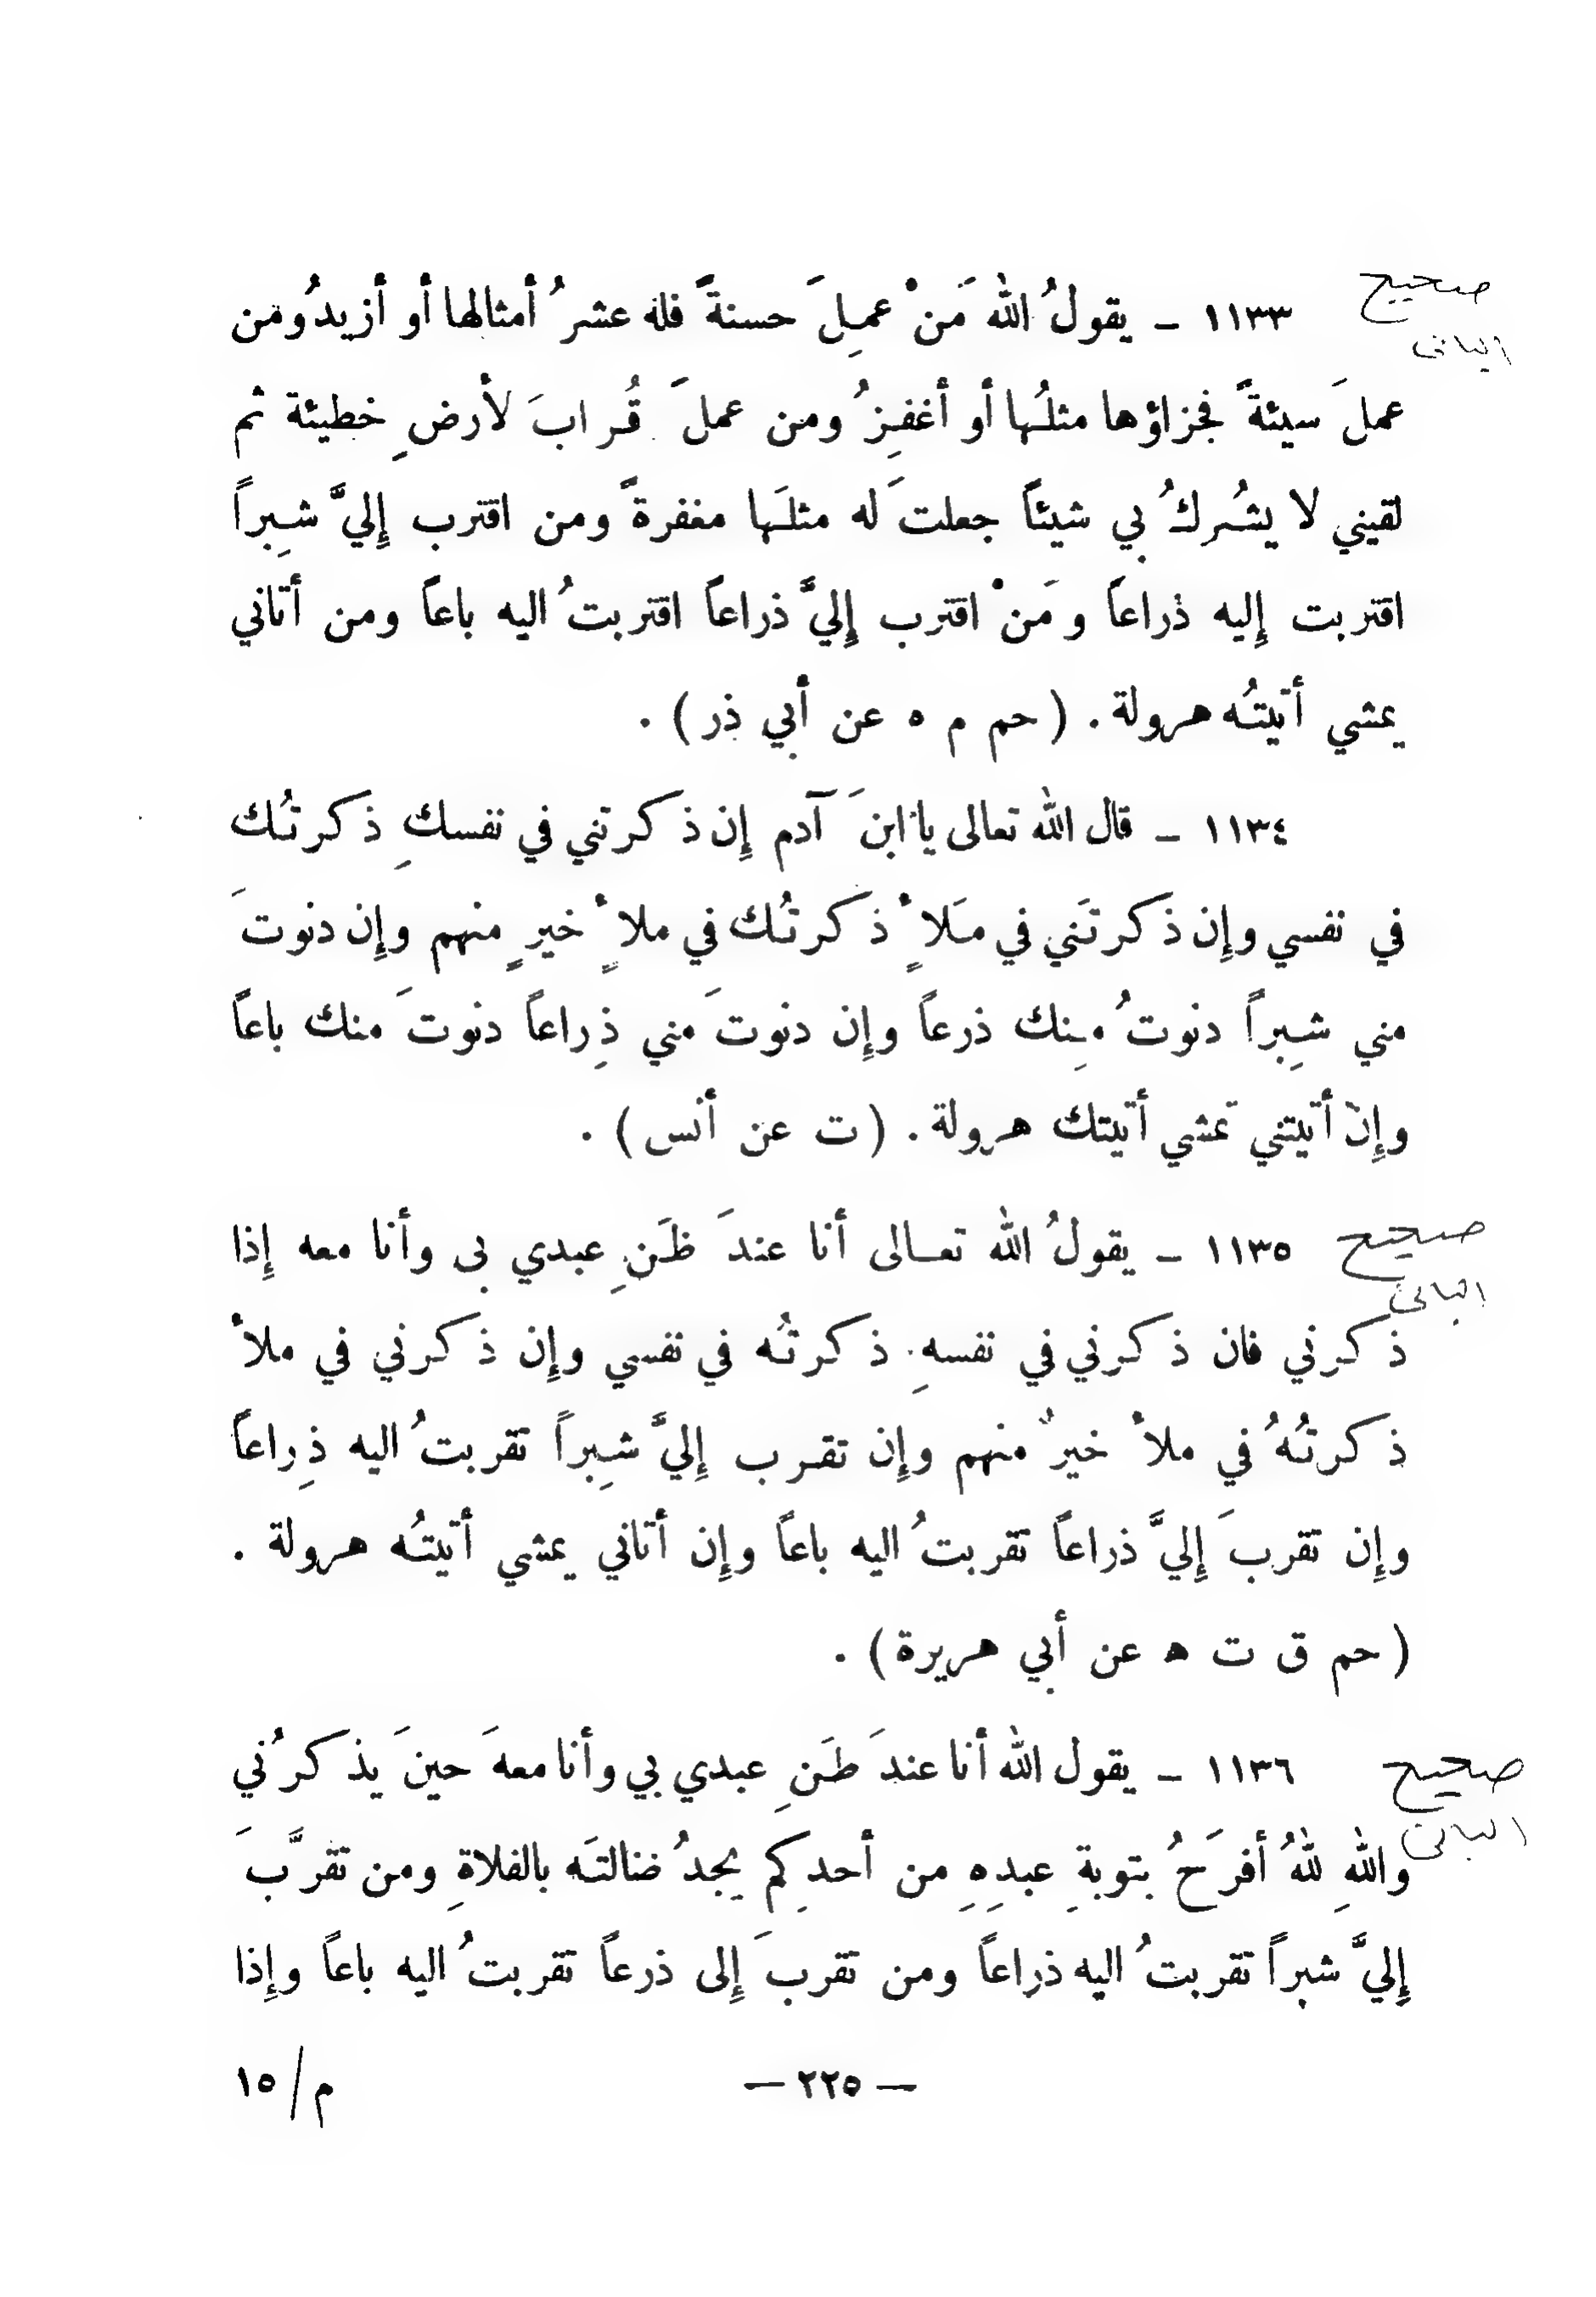 صحيح
البانى
١١٣٣ ـ يقولُ الله مَنْ عمِلَ حسنةً فله عشرُ أمثالها أو أزيدُ ومن
عملَ سيئةً فجزاؤها مثلُها أو أغفِرُ ومن عملَ قُرابَ لأرضِ خطيئة ثم
لقيني لا يشُركُ بي شيئاً جعلتَ له مثلَها مغفرةً ومن اقترب إِليَّ شِبراً
اقتربت إِليه ذراعاً ومَنْ اقترب إِليَّ ذراعاً اقتربتُ اليه باعاً ومن أتاني
يمشي أتيتُه هرولة . ( حم م ه عن أبي ذر ) .
١١٣٤ ـ قال الله تعالى يا ابنَ آدم إِن ذكرتني في نفسكِ ذكرتُك
في نفسي وإِن ذكرتَني في مَلأٍ ذكرتُك في ملأٍ خيرٍ منهم وإِن دنوتَ
مني شِبراً دنوتُ مِنك ذرعاً وإِن دنوتَ مني ذِراعاً دنوتَ منك باعاً
وإِن أتيتني تمشي أتيتك هرولة . ( ت عن أنس ) .
صحيح
البانى
١١٣٥ ـ يقولُ الله تعـالى أنا عندَ ظَنِ عبدي بى وأنا معه إِذا
ذكرني فان ذكرني في نفسهِ ذكرتُه في نفسي وإِن ذكرني في ملأ
ذكرتُهُ في ملأ خيرٌ منهم وإِن تقرب إِليَّ شِبراً تقربتُ اليه ذِراعاً
وإِن تقربَ إِليَّ ذراعاً تقربتُ اليه باعاً وإِن أتاني يمشي أتيتُه هرولة .
( حم ق ت ه عن أبي هريرة ) .
صحيح
البانى
١١٣٦ ـ يقول الله أنا عندَ ظَنِ عبدي بي وأنا معهَ حينَ يذكرُني
واللهِ للهُ أفرَحُ بتوبةِ عبدِهِ من أحدِكم يجدُ ضالتَه بالفلاةِ ومن تقرَّبَ
إِليَّ شبراً تقربتُ اليه ذراعاً ومن تقربَ إِلى ذرعاً تقربتُ اليه باعاً وإِذا
— ٢٢٥ —
م/١٥